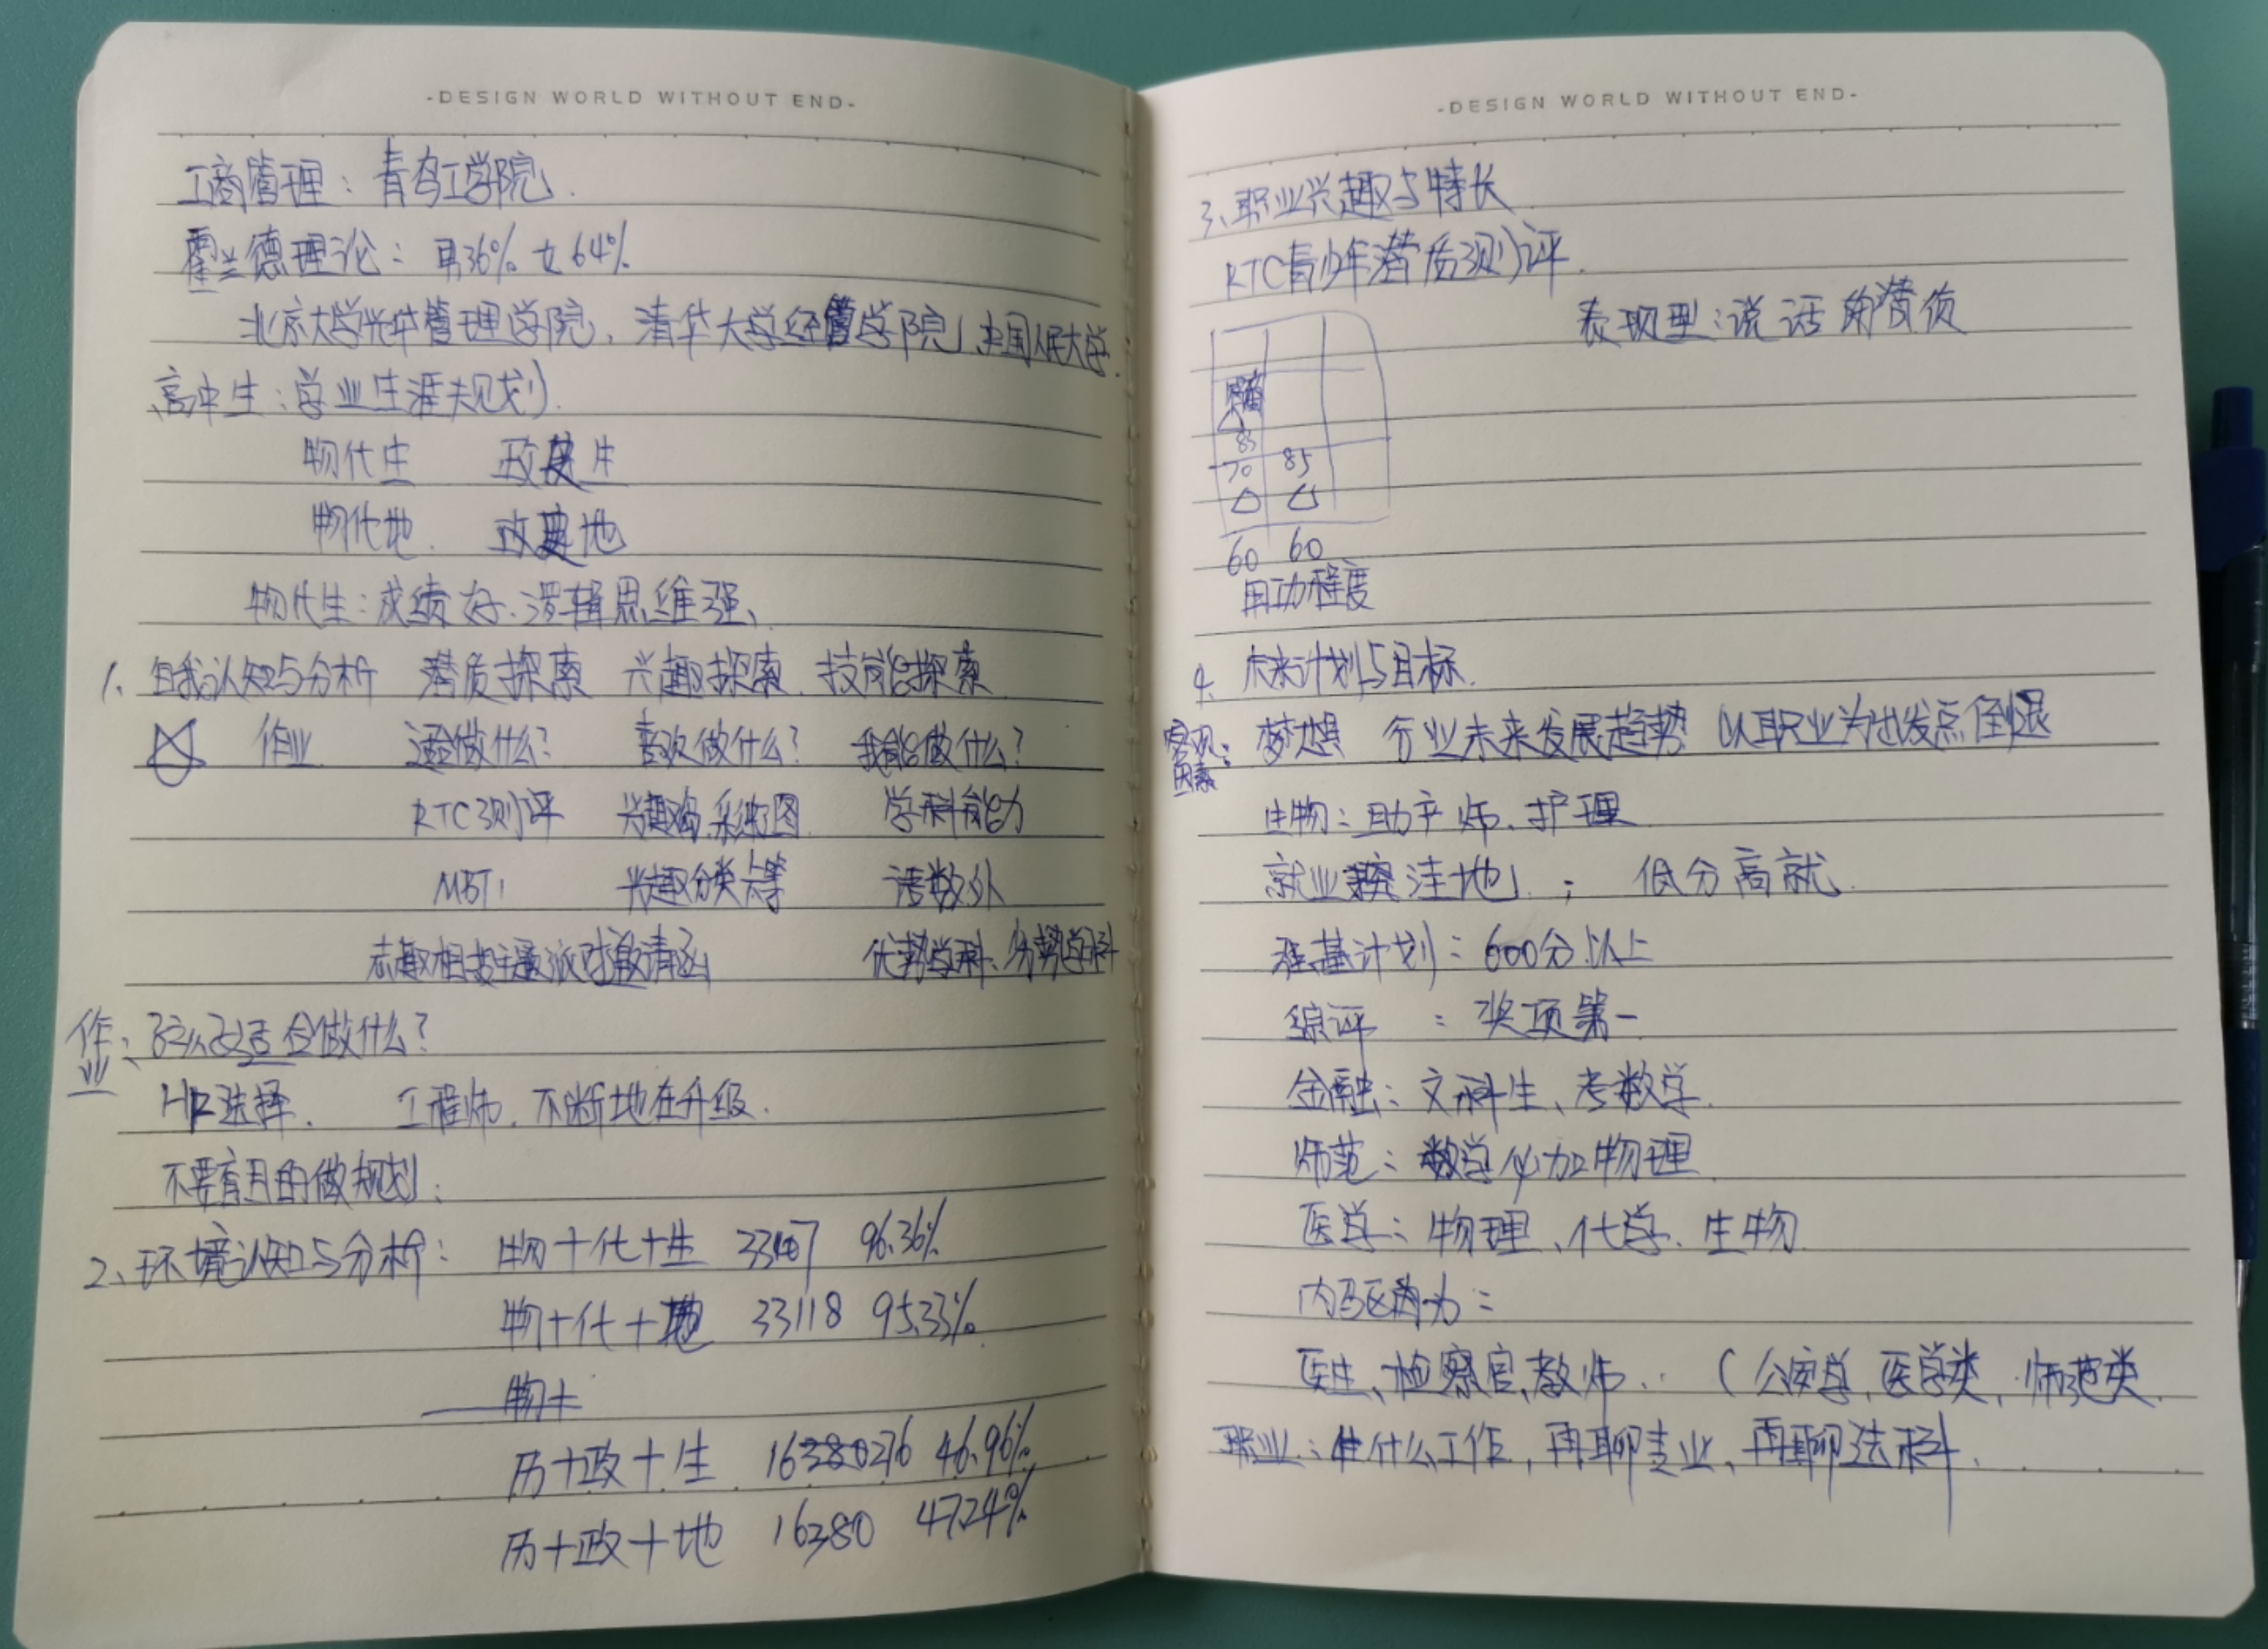 -DESIGN WORLD WITHOUT END-
工商管理：青鸟工学院.
霍兰德理论：男36% 女64%
北京大学光华管理学院、清华大学经管学院、中国人民大学.
高中生：学业生涯规划
物化生 政史生
物化地. 政史地
物化生：成绩好.逻辑思维强、
1、自我认知与分析 潜质探索 兴趣探索、技能探索
作业 适合做什么？ 喜欢做什么？ 我能做什么？
RTC测评 兴趣岛、彩虹图 学科能力
MBTI 兴趣分类卡等 语数外
志趣相投主题派对邀请函 优势学科、劣势学科
作业：适合做什么？
HR选择. 工程师.不断地在升级.
不要盲目的做规划：
2、环境认知与分析： 物+化+生 33407 96.36%
物+化+地 33118 95.33%
物+
历+政+生 46.96%
历+政+地 16380 47.24%
-DESIGN WORLD WITHOUT END-
3、职业兴趣与特长
RTC青少年潜质测评.
表现型：说话的潜质
85
70 85
60 60
用功程度
4、未来计划与目标.
客观因素： 梦想 行业未来发展趋势 以职业为出发点倒退
生物：助产师、护理
就业洼地； 低分高就.
强基计划：600分以上
综评：奖项第一
金融：文科生、考数学.
师范：数学必加物理
医学：物理、化学、生物.
内驱动力：
医生、检察官、教师.. （公安学，医学类，师范类.
职业：什么工作，再聊专业、再聊选科.